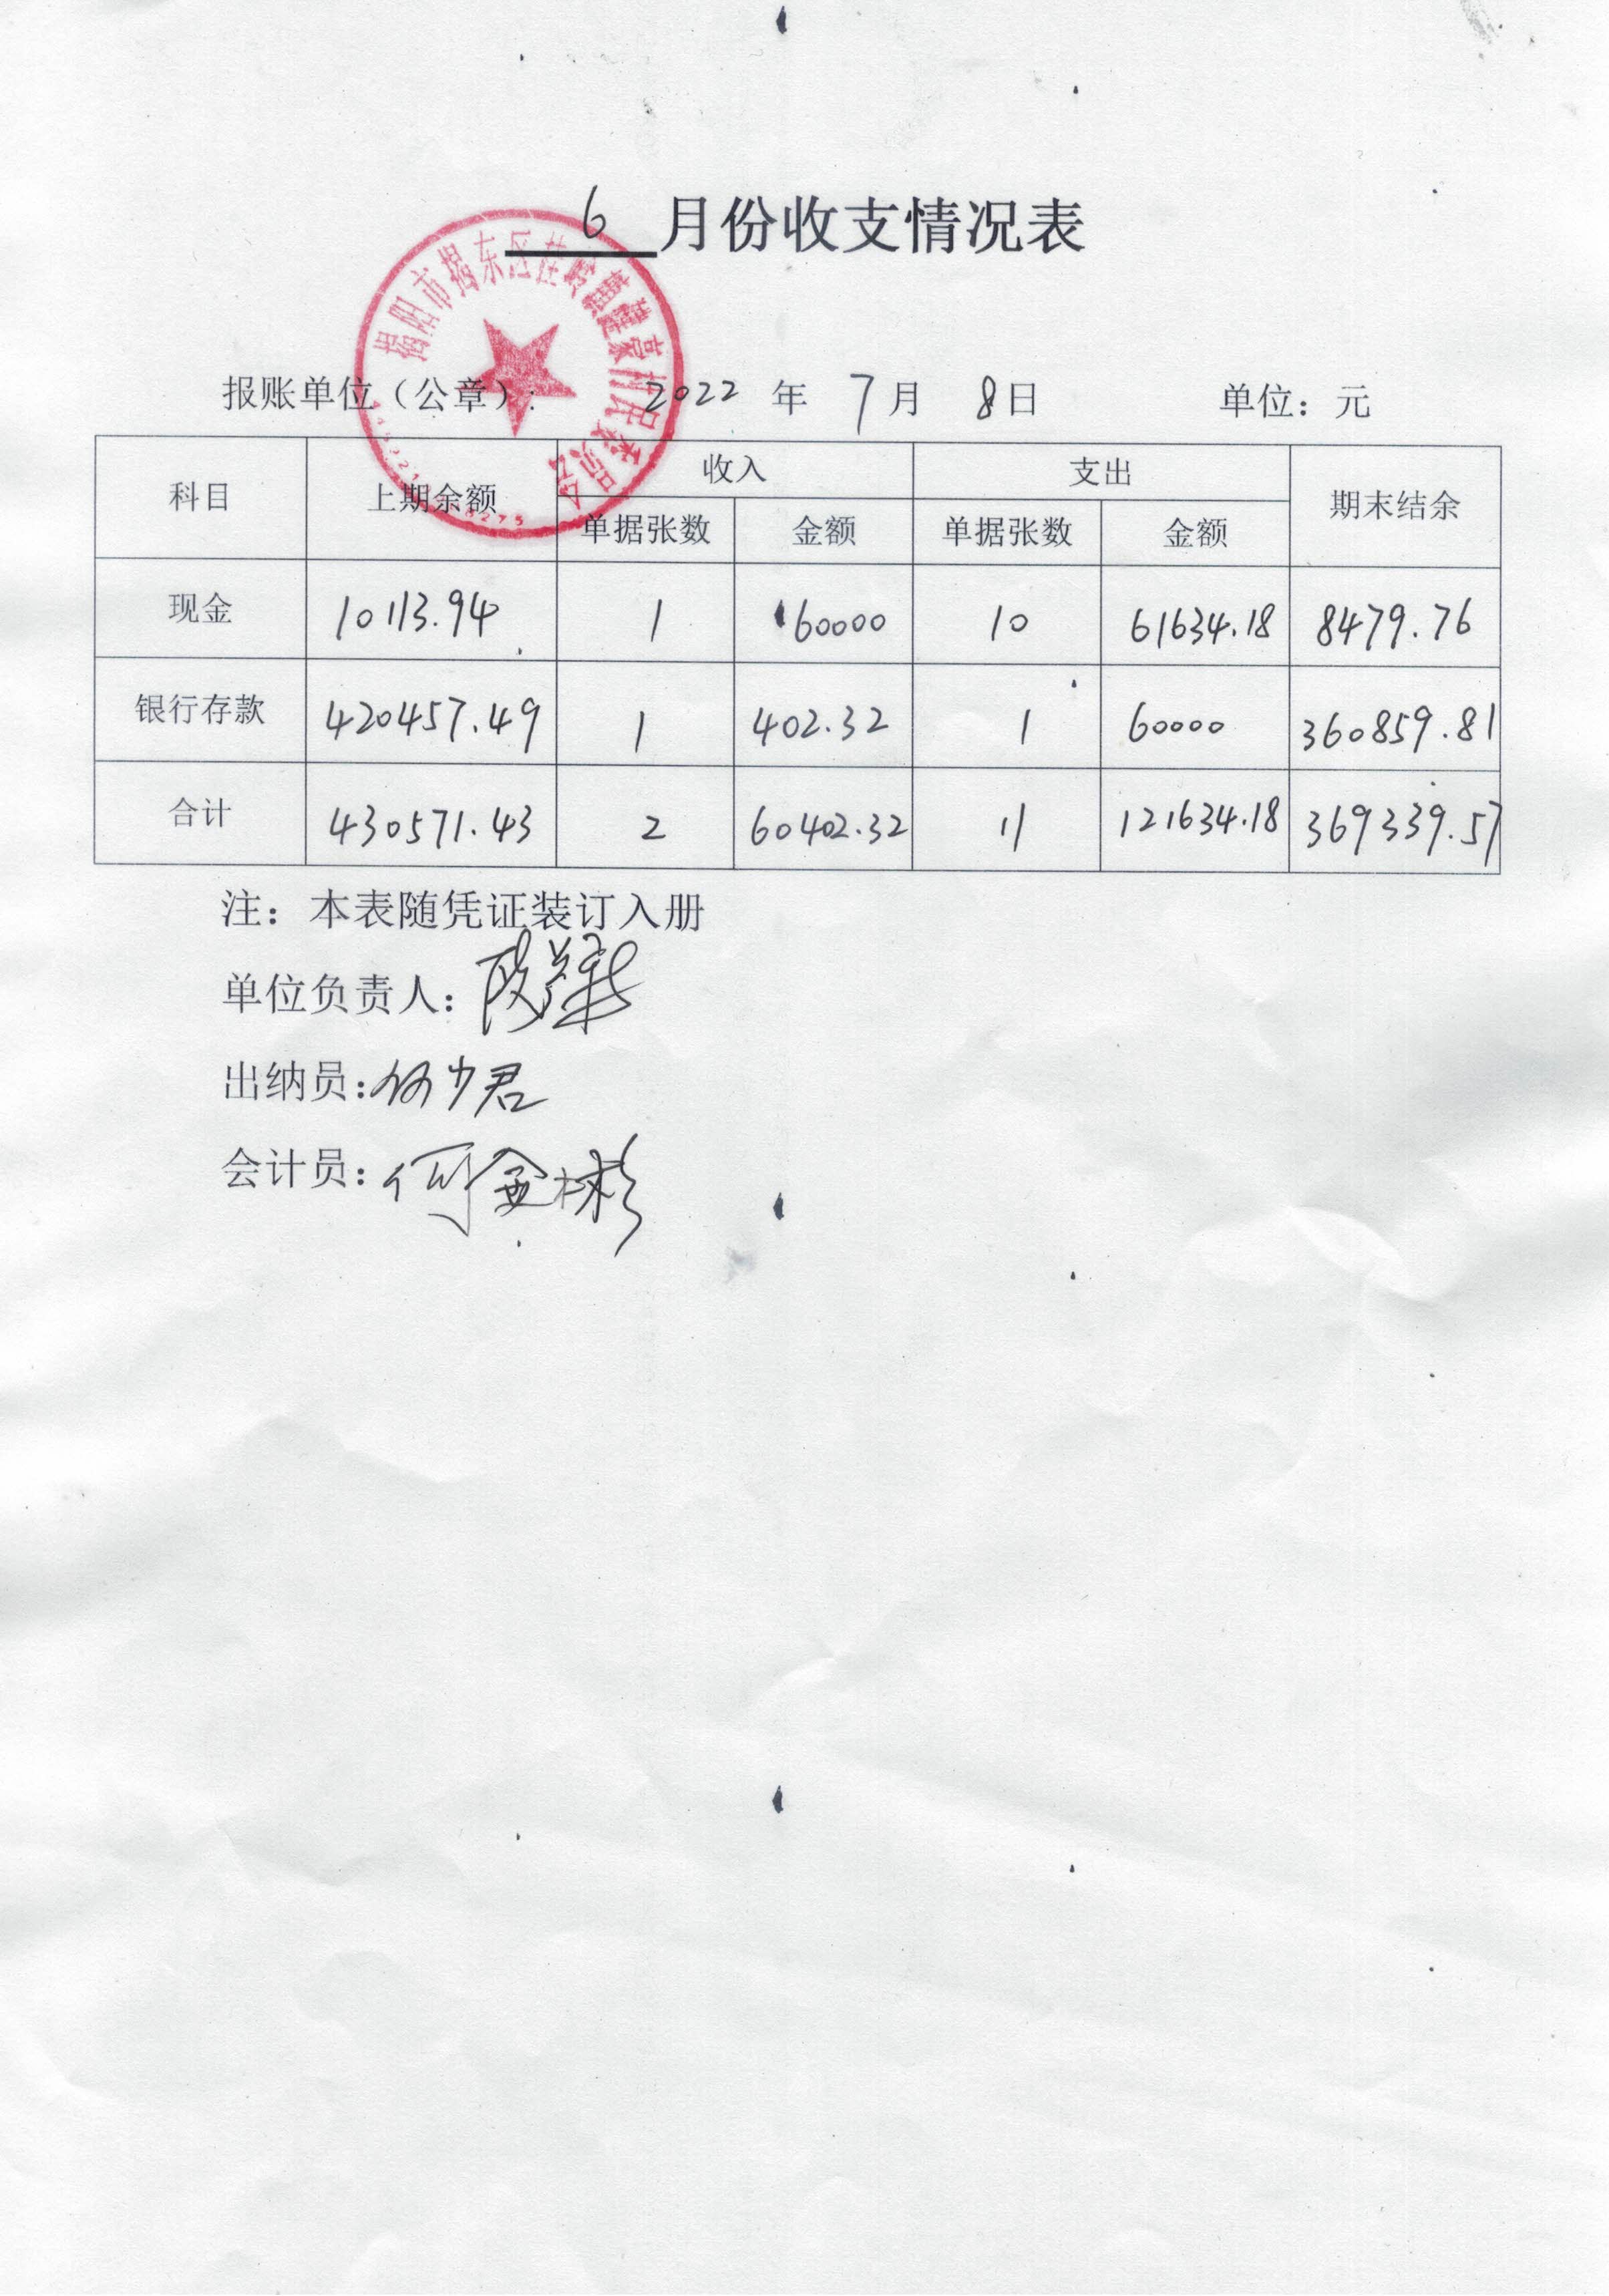 6 月份收支情况表
报账单位（公章）： 2022 年 7 月 8 日 单位：元
揭阳市揭东区 村民委员会
科目 上期余额 收入 支出 期末结余
单据张数 金额 单据张数 金额
现金 10113.94 1 60000 10 61634.18 8479.76
银行存款 420457.49 1 402.32 1 60000 360859.81
合计 430571.43 2 60402.32 11 121634.18 369339.57
注：本表随凭证装订入册
单位负责人：
出纳员：何少君
会计员：何金彬